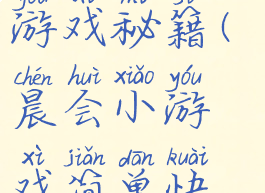 游戏秘籍(
chén huì xiǎo yóu
晨会小游
xì jiǎn dān kuài
戏简单快